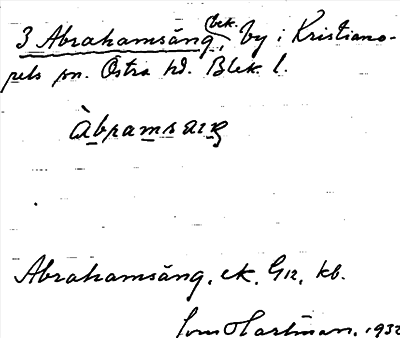 3 Abrahamsäng, bek. by i Kristiano-
pels sn. Östra hd. Blek. l.
Abrahamsäng, ek, G12, kb.
Hartman, 1932